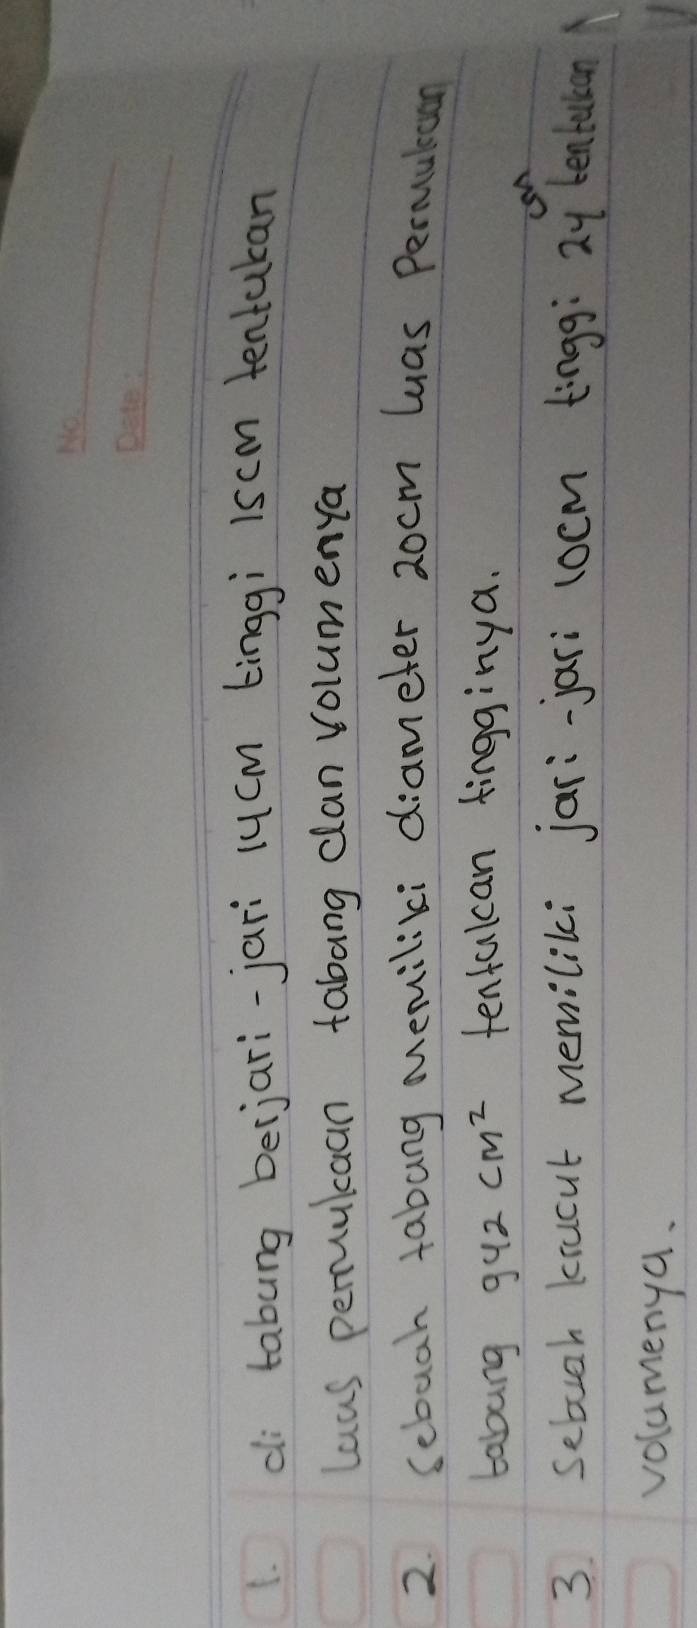 No
Date:
1. di tabung berjari-jari 14cm tinggi 15cm tentukan
Luas permukaan tabung dan volumenya
2. Sebuah tabung memiliki diameter 20cm luas permukaan
tabung 942 cm² tentukan tingginya.
3. Sebuah krucut memiliki jari-jari 10cm tinggi 24 cm tentukan
volumenya.